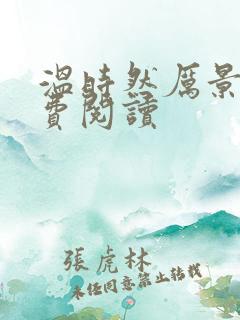 溫時然厲景
費閱讀
張虎林
未经同意禁止转载